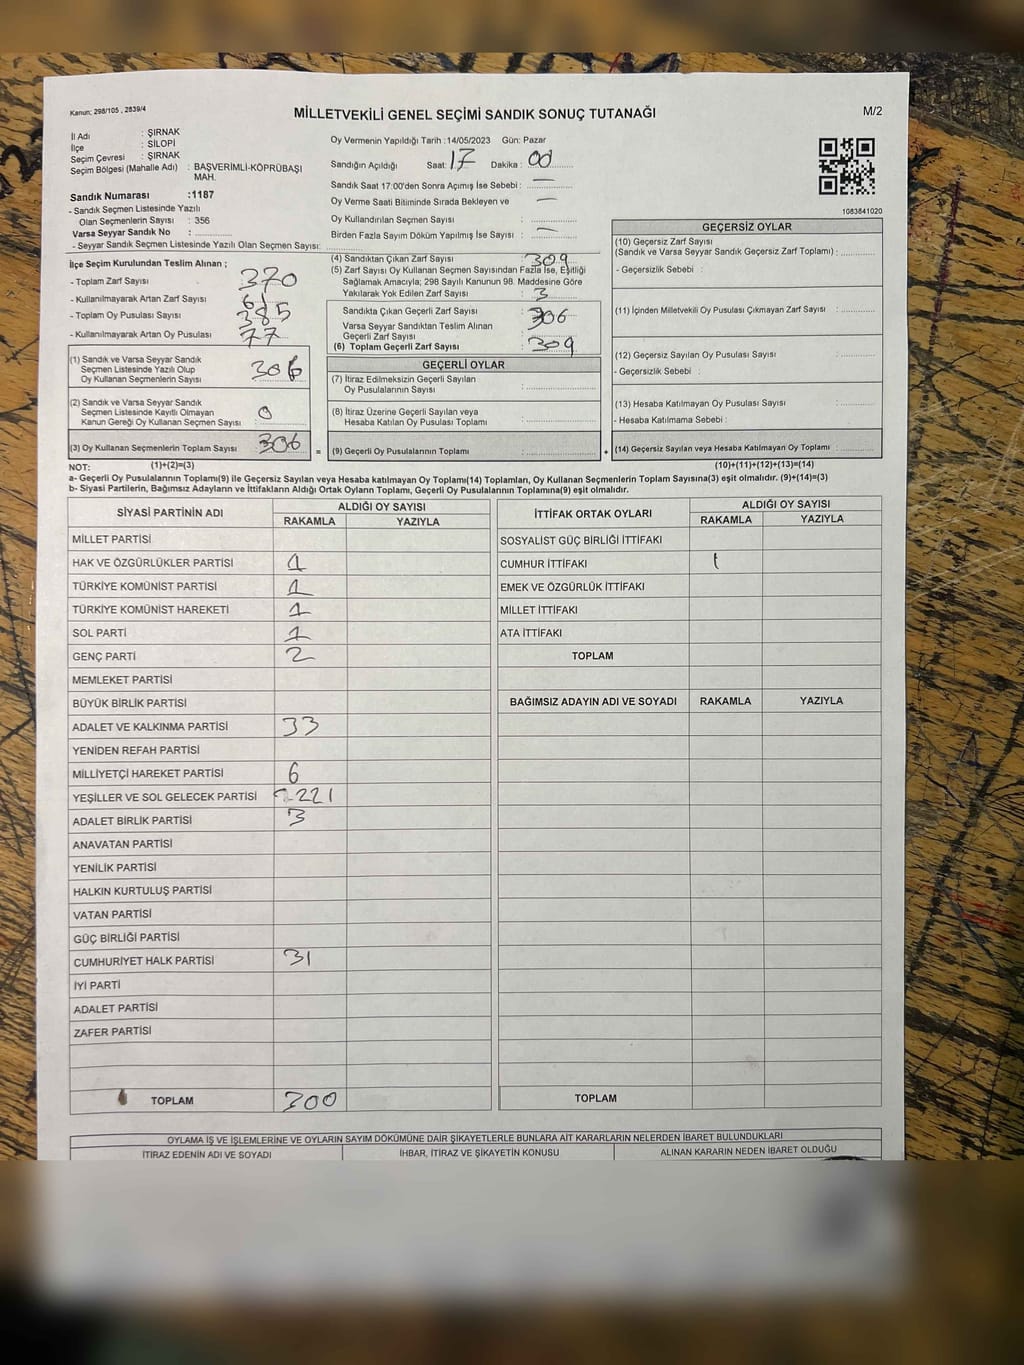 Kanun: 298/105 , 2839/4
MİLLETVEKİLİ GENEL SEÇİMİ SANDIK SONUÇ TUTANAĞI
M/2
İl Adı : ŞIRNAK
İlçe : SİLOPİ
Seçim Çevresi : ŞIRNAK
Seçim Bölgesi (Mahalle Adı) : BAŞVERİMLİ-KÖPRÜBAŞI MAH.
Sandık Numarası :1187
- Sandık Seçmen Listesinde Yazılı
Olan Seçmenlerin Sayısı : 356
Varsa Seyyar Sandık No :
- Seyyar Sandık Seçmen Listesinde Yazılı Olan Seçmen Sayısı:
Oy Vermenin Yapıldığı Tarih :14/05/2023 Gün: Pazar
Sandığın Açıldığı Saat: 17 Dakika : 00
Sandık Saat 17:00'den Sonra Açımış İse Sebebi : —
Oy Verme Saati Bitiminde Sırada Bekleyen ve —
Oy Kullandırılan Seçmen Sayısı :
Birden Fazla Sayım Döküm Yapılmış İse Sayısı : —
1083841020
İlçe Seçim Kurulundan Teslim Alınan ;
- Toplam Zarf Sayısı : 370
- Kullanılmayarak Artan Zarf Sayısı : 61
- Toplam Oy Pusulası Sayısı : 385
- Kullanılmayarak Artan Oy Pusulası : 77
(1) Sandık ve Varsa Seyyar Sandık
Seçmen Listesinde Yazılı Olup
Oy Kullanan Seçmenlerin Sayısı : 306
(2) Sandık ve Varsa Seyyar Sandık
Seçmen Listesinde Kayıtlı Olmayan
Kanun Gereği Oy Kullanan Seçmen Sayısı : 0
(3) Oy Kullanan Seçmenlerin Toplam Sayısı : 306 =
(4) Sandıktan Çıkan Zarf Sayısı : 309
(5) Zarf Sayısı Oy Kullanan Seçmen Sayısından Fazla İse, Eşitliği
Sağlamak Amacıyla; 298 Sayılı Kanunun 98. Maddesine Göre
Yakılarak Yok Edilen Zarf Sayısı : 3
Sandıkta Çıkan Geçerli Zarf Sayısı : 306
Varsa Seyyar Sandıktan Teslim Alınan
Geçerli Zarf Sayısı :
(6) Toplam Geçerli Zarf Sayısı : 309
GEÇERLİ OYLAR
(7) İtiraz Edilmeksizin Geçerli Sayılan
Oy Pusulalarının Sayısı :
(8) İtiraz Üzerine Geçerli Sayılan veya
Hesaba Katılan Oy Pusulası Toplamı :
(9) Geçerli Oy Pusulalarının Toplamı : +
GEÇERSİZ OYLAR
(10) Geçersiz Zarf Sayısı
(Sandık ve Varsa Seyyar Sandık Geçersiz Zarf Toplamı) :
- Geçersizlik Sebebi :
(11) İçinden Milletvekili Oy Pusulası Çıkmayan Zarf Sayısı :
(12) Geçersiz Sayılan Oy Pusulası Sayısı :
- Geçersizlik Sebebi :
(13) Hesaba Katılmayan Oy Pusulası Sayısı :
- Hesaba Katılmama Sebebi :
(14) Geçersiz Sayılan veya Hesaba Katılmayan Oy Toplamı :
NOT: (1)+(2)=(3) (10)+(11)+(12)+(13)=(14)
a- Geçerli Oy Pusulalarının Toplamı(9) ile Geçersiz Sayılan veya Hesaba katılmayan Oy Toplamı(14) Toplamları, Oy Kullanan Seçmenlerin Toplam Sayısına(3) eşit olmalıdır. (9)+(14)=(3)
b- Siyasi Partilerin, Bağımsız Adayların ve İttifakların Aldığı Ortak Oyların Toplamı, Geçerli Oy Pusulalarının Toplamına(9) eşit olmalıdır.
SİYASİ PARTİNİN ADI ALDIĞI OY SAYISI
RAKAMLA YAZIYLA
MİLLET PARTİSİ
HAK VE ÖZGÜRLÜKLER PARTİSİ 1
TÜRKİYE KOMÜNİST PARTİSİ 1
TÜRKİYE KOMÜNİST HAREKETİ 1
SOL PARTİ 1
GENÇ PARTİ 2
MEMLEKET PARTİSİ
BÜYÜK BİRLİK PARTİSİ
ADALET VE KALKINMA PARTİSİ 33
YENİDEN REFAH PARTİSİ
MİLLİYETÇİ HAREKET PARTİSİ 6
YEŞİLLER VE SOL GELECEK PARTİSİ 221
ADALET BİRLİK PARTİSİ 3
ANAVATAN PARTİSİ
YENİLİK PARTİSİ
HALKIN KURTULUŞ PARTİSİ
VATAN PARTİSİ
GÜÇ BİRLİĞİ PARTİSİ
CUMHURİYET HALK PARTİSİ 31
İYİ PARTİ
ADALET PARTİSİ
ZAFER PARTİSİ
TOPLAM 300
İTTİFAK ORTAK OYLARI ALDIĞI OY SAYISI
RAKAMLA YAZIYLA
SOSYALİST GÜÇ BİRLİĞİ İTTİFAKI
CUMHUR İTTİFAKI 1
EMEK VE ÖZGÜRLÜK İTTİFAKI
MİLLET İTTİFAKI
ATA İTTİFAKI
TOPLAM
BAĞIMSIZ ADAYIN ADI VE SOYADI RAKAMLA YAZIYLA
TOPLAM
OYLAMA İŞ VE İŞLEMLERİNE VE OYLARIN SAYIM DÖKÜMÜNE DAİR ŞİKAYETLERLE BUNLARA AİT KARARLARIN NELERDEN İBARET BULUNDUKLARI
İTİRAZ EDENİN ADI VE SOYADI İHBAR, İTİRAZ VE ŞİKAYETİN KONUSU ALINAN KARARIN NEDEN İBARET OLDUĞU